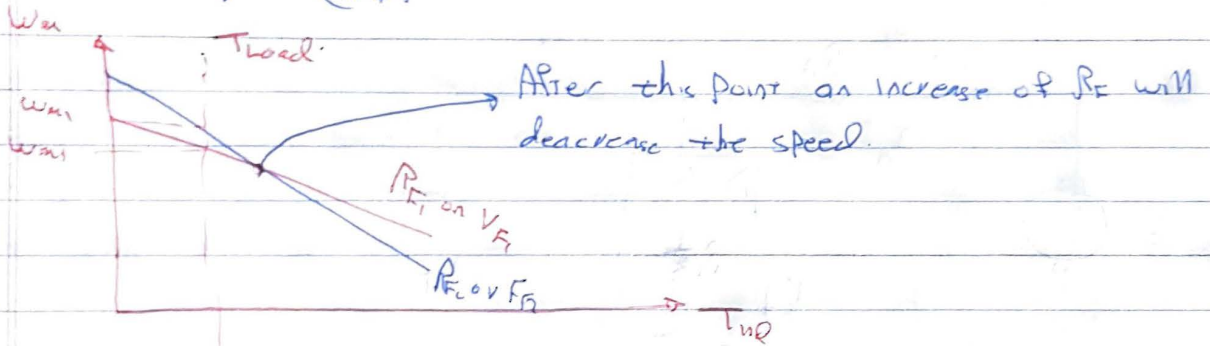 ωm
TLoad.
After this point an increase of RF will
ωm1
ωm1
deacrease the speed.
RF1 or VF1
RF2 or VF2
Tind